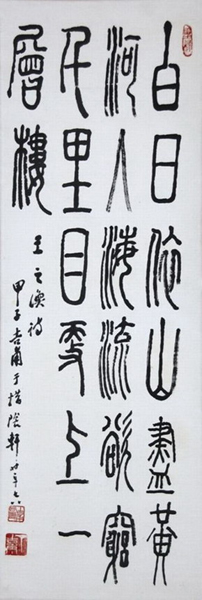 白日依山盡黃
河入海流欲窮
千里目更上一
層樓
王之渙詩
甲子 于惜陰軒